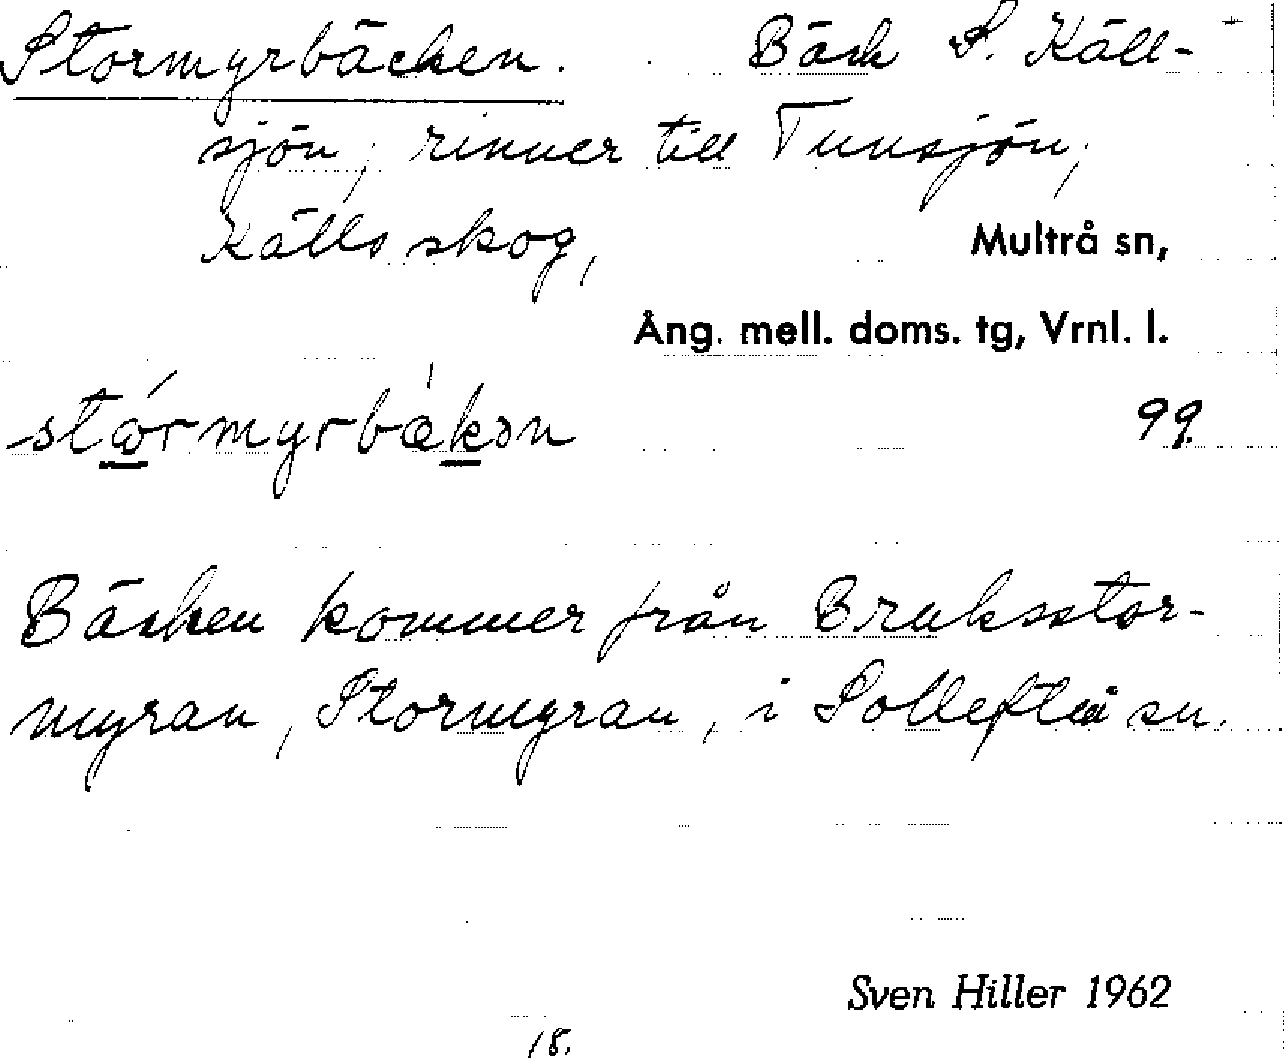 Stormyrbäcken. Bäck S. Käll-
sjön, rinner till Tunsjön,
Källs skog, Multrå sn,
Ång. mell. doms. tg, Vrnl. l.
stórmyrbækən 99.
Bäcken kommer från Bruksstor-
myran, Stormyran, i Sollefteå sn.
Sven Hiller 1962
18.